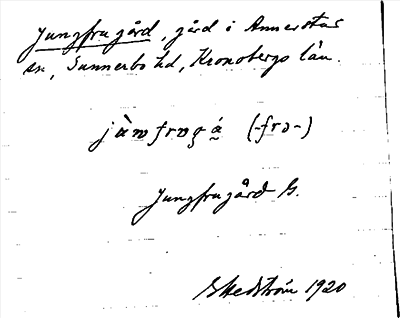 Jungfrugård, gård i Annerstad
sn, Sunnerbo hd, Kronobergs län.
(-frə-)
Jungfrugård G.
Hedström 1920